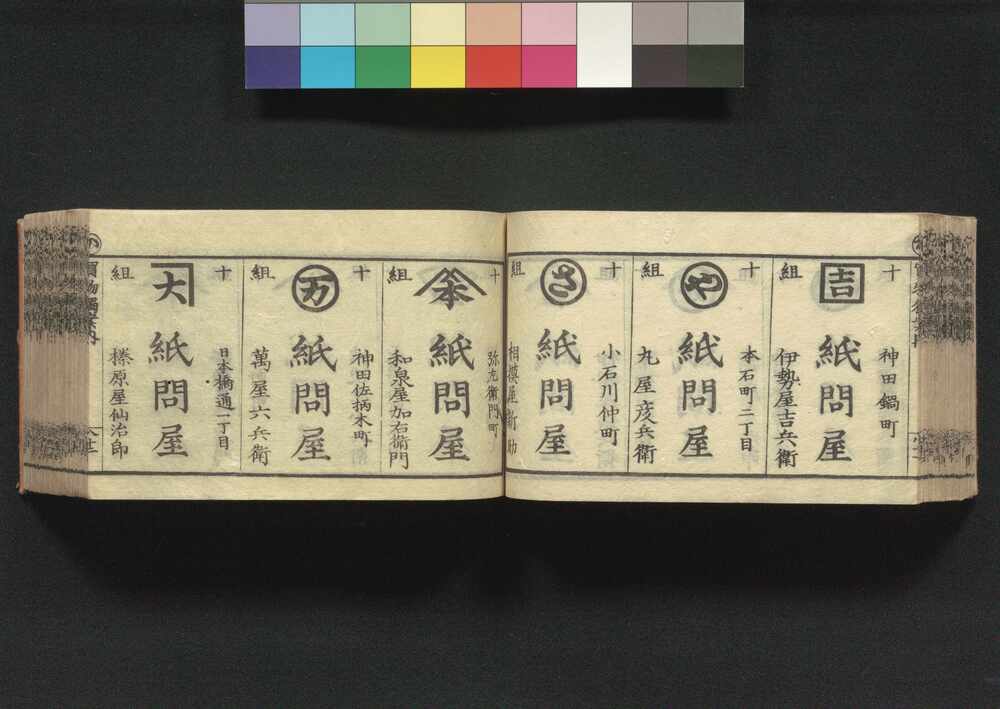 十
組
神田鍋町
吉
紙問屋
伊勢屋吉兵衛
十
組
本石町二丁目
や
紙問屋
丸屋彦兵衛
十
組
小石川仲町
さ
紙問屋
相模屋新助
十
組
弥左衛門町
本
紙問屋
和泉屋加右衛門
十
組
神田佐柄木町
万
紙問屋
萬屋六兵衛
十
組
日本橋通一丁目
大
紙問屋
榛原屋仙治郎